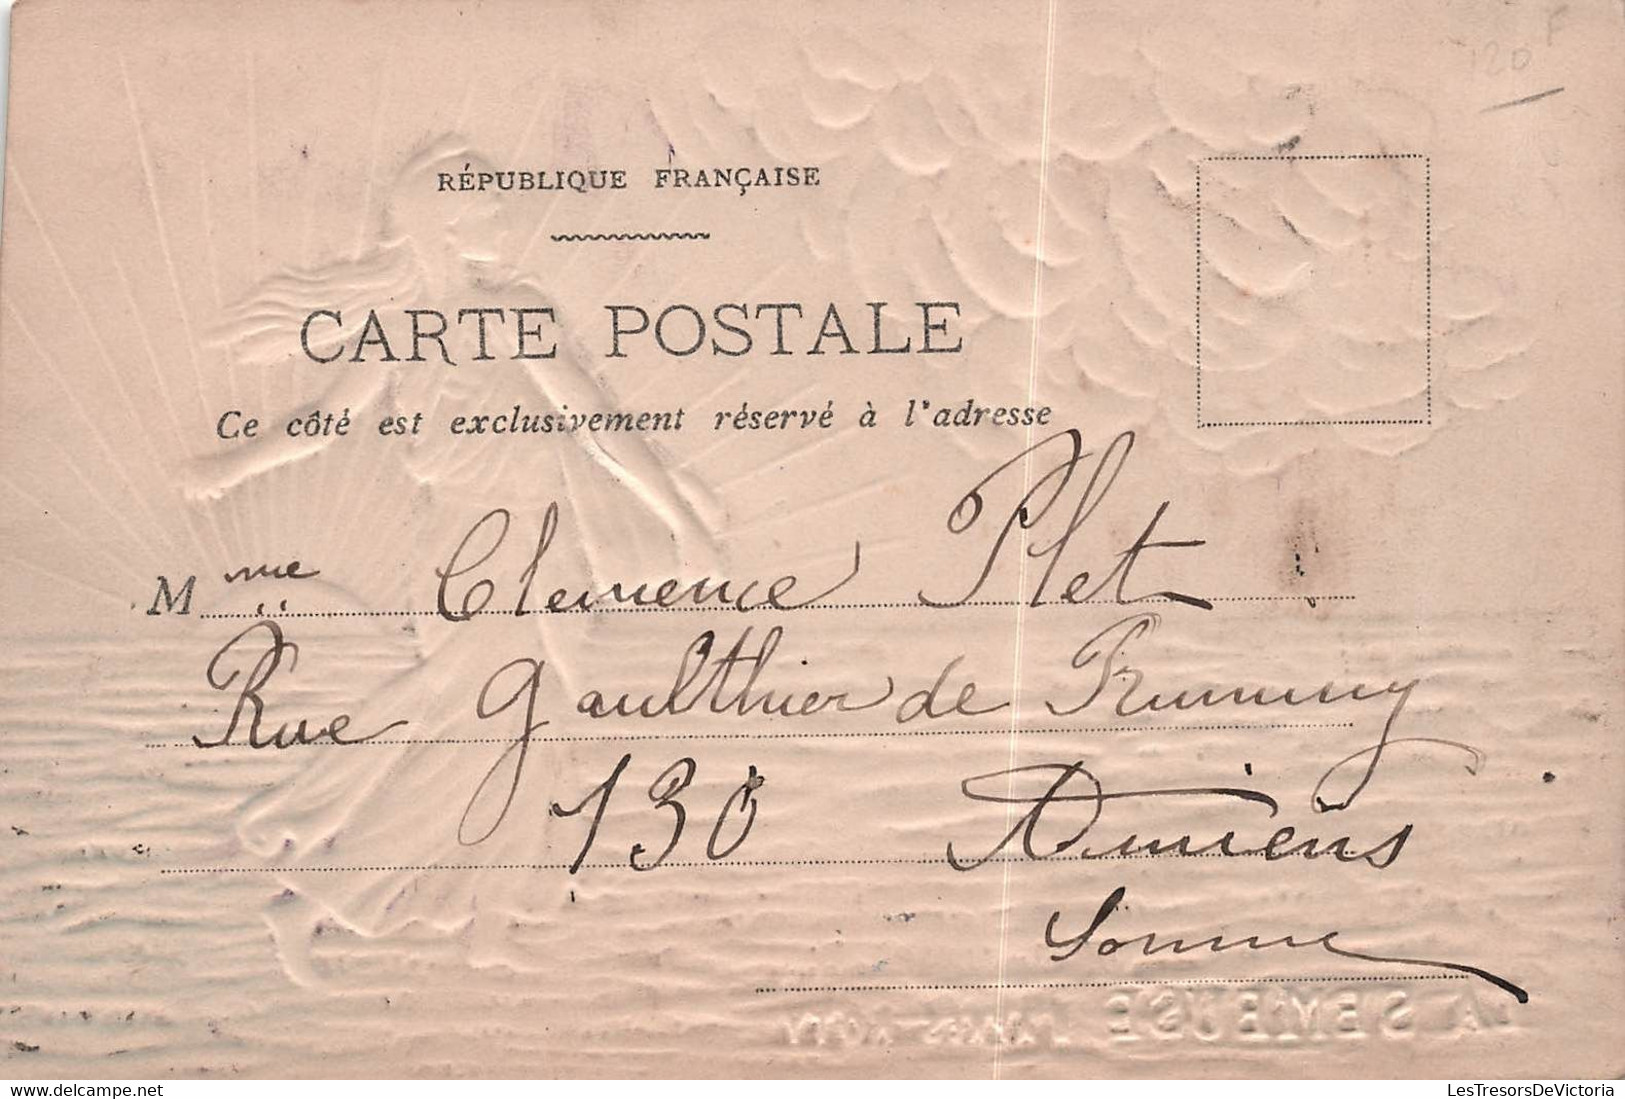 120 F
RÉPUBLIQUE FRANÇAISE
CARTE POSTALE
Ce côté est exclusivement réservé à l'adresse
Mme Clemence Plet
Rue Gaulthier de Rumimy
130 Amiens
Somme
LA SEMEUSE
www.delcampe.net
LesTresorsDeVictoria